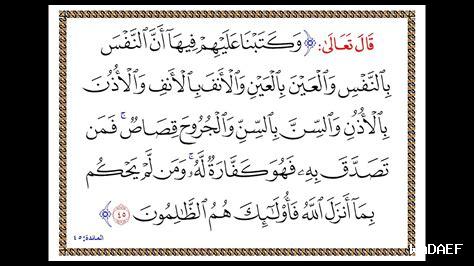 قَالَ تَعَالَىٰ: ﴿ وَكَتَبْنَا عَلَيْهِمْ فِيهَآ أَنَّ ٱلنَّفْسَ
بِٱلنَّفْسِ وَٱلْعَيْنَ بِٱلْعَيْنِ وَٱلْأَنفَ بِٱلْأَنفِ وَٱلْأُذُنَ
بِٱلْأُذُنِ وَٱلسِّنَّ بِٱلسِّنِّ وَٱلْجُرُوحَ قِصَاصٌ ۚ فَمَن
تَصَدَّقَ بِهِۦ فَهُوَ كَفَّارَةٌ لَّهُۥ ۚ وَمَن لَّمْ يَحْكُم
بِمَآ أَنزَلَ ٱللَّهُ فَأُو۟لَـٰٓئِكَ هُمُ ٱلظَّـٰلِمُونَ ٤٥ ﴾
المائدة: ٤٥